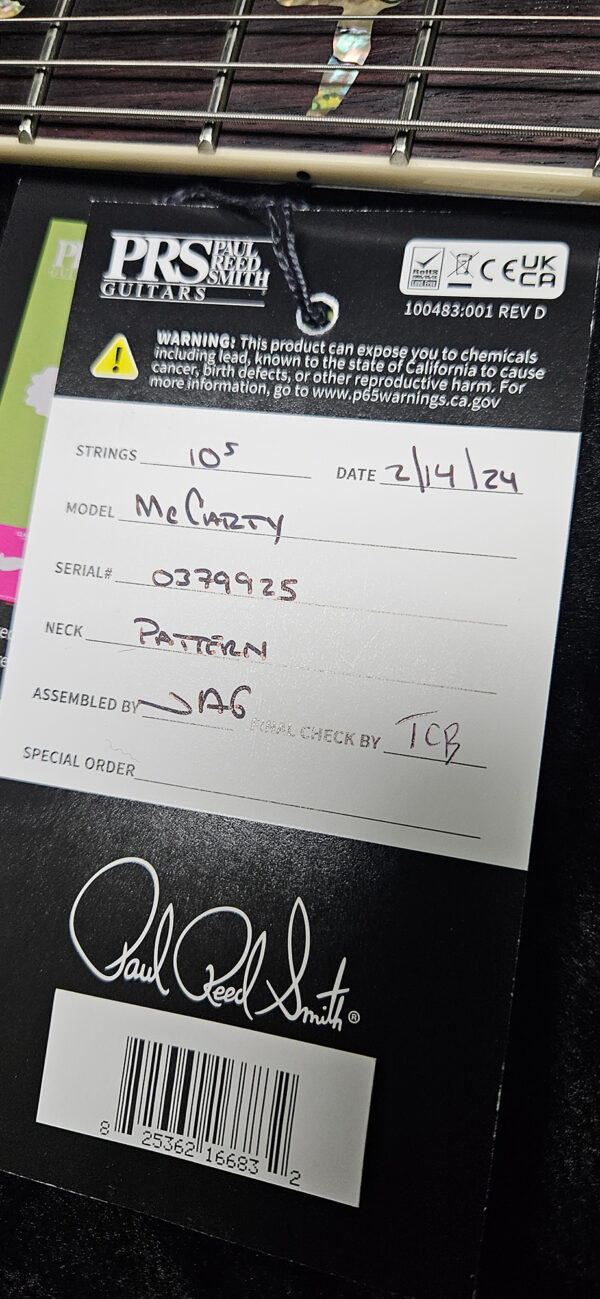 PRS PAUL REED SMITH
GUITARS
RoHS
CE UK CA
100483:001 REV D
WARNING: This product can expose you to chemicals
including lead, known to the state of California to cause
cancer, birth defects, or other reproductive harm. For
more information, go to www.p65warnings.ca.gov
STRINGS 10s DATE 2/14/24
MODEL McCARTY
SERIAL# 0379925
NECK PATTERN
ASSEMBLED BY JAG FINAL CHECK BY TCB
SPECIAL ORDER
Paul Reed Smith®
8 25362 16683 2